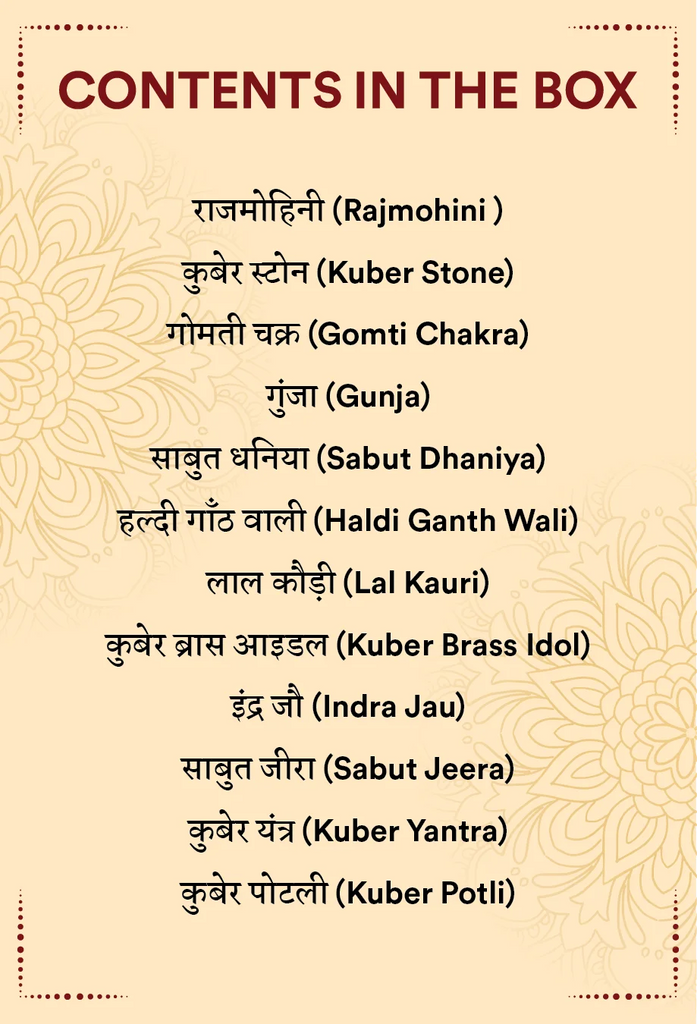 CONTENTS IN THE BOX
राजमोहिनी (Rajmohini )
कुबेर स्टोन (Kuber Stone)
गोमती चक्र (Gomti Chakra)
गुंजा (Gunja)
साबुत धनिया (Sabut Dhaniya)
हल्दी गाँठ वाली (Haldi Ganth Wali)
लाल कौड़ी (Lal Kauri)
कुबेर ब्रास आइडल (Kuber Brass Idol)
इंद्र जौ (Indra Jau)
साबुत जीरा (Sabut Jeera)
कुबेर यंत्र (Kuber Yantra)
कुबेर पोटली (Kuber Potli)